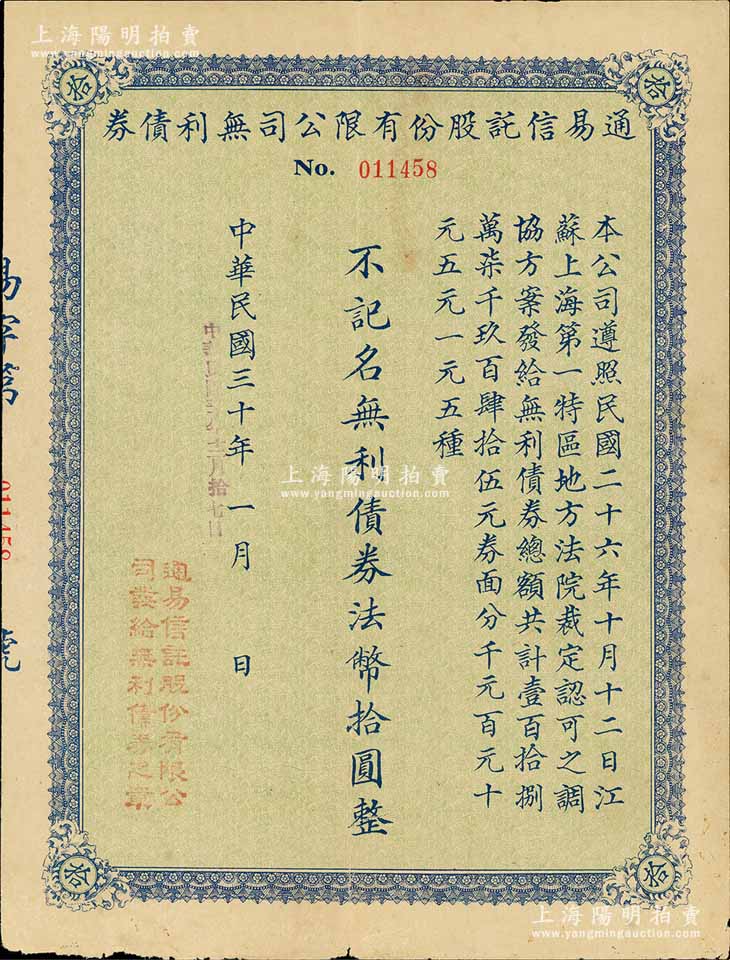 上海陽明拍賣
www.yangmingauction.com
拾
拾
通易信託股份有限公司無利債券
No. 011458
本公司遵照民國二十六年十月十二日江
蘇上海第一特區地方法院裁定認可之調
協方案發給無利債券總額共計壹百拾捌
萬柒千玖百肆拾伍元券面分千元百元十
元五元一元五種
不記名無利債券法幣拾圓整
中華民國三十年一月 日
月拾七日
通易信託股份有限公
司發給無利債券之章
易字第 011458 號
上海陽明拍賣
www.yangmingauction.com
拾
拾
上海陽明拍賣
www.yangmingauction.com